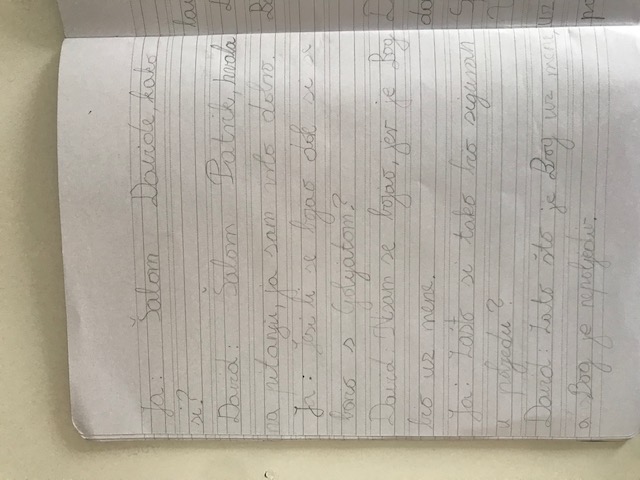 Ja: Šalom Davide, kako
si?
David: Šalom Patrik, hvala
na pitanju, ja sam vrlo dobro.
Ja: Jesi li se bojao dok si se
borio s Golijatom?
David Nisam se bojao, jer je Bog
bio uz mene.
Ja: Zašto si tako bio siguran
u pobjedu?
David: Zato što je Bog uz mene,
a Bog je nepobjediv.